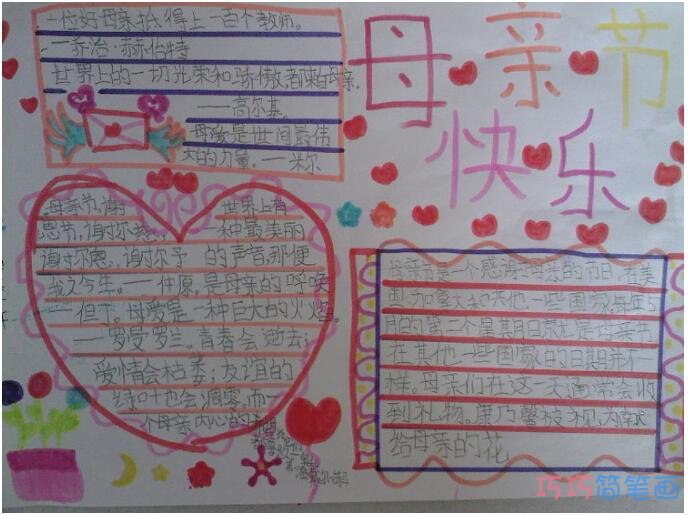 一位好母亲抵得上一百个教师。
—乔治·赫伯特
世界上的一切光荣和骄傲,都来自母亲.
——高尔基。
母爱是世间最伟
大的力量。——米尔
母亲节快乐
母亲节,谢
恩节,谢尔慈,
谢尔恩,谢尔予
我又今生。——仲原,
世界上有
一种最美丽
的声音,那便
是母亲的呼唤
—但丁。母爱是一种巨大的火焰。
——罗曼罗兰。青春会逝去;
爱情会枯萎;友谊的
绿叶也会凋零,而一
个母亲内心的希望
母亲节是一个感谢母亲的节日,在美
国、加拿大和其他一些国家,每年5
月的第二个星期日就是母亲节
在其他一些国家的日期并不一
样。母亲们在这一天通常会收
到礼物。康乃馨被视为献
给母亲的花
巧巧简笔画